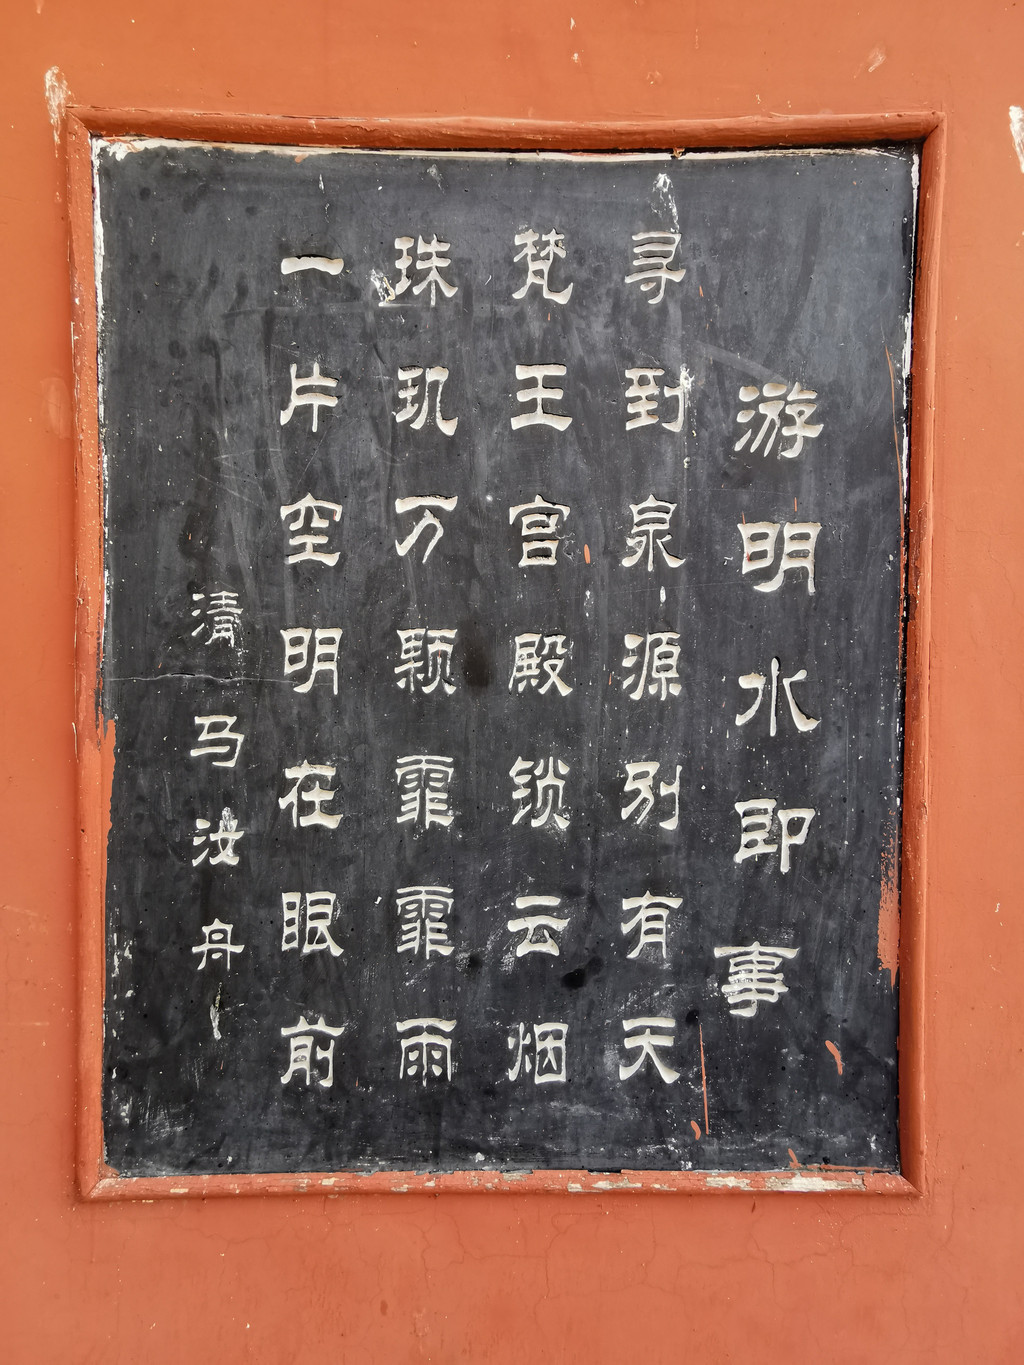 游明水即事
寻到泉源别有天
梵王宫殿锁云烟
珠玑万颗霏霏雨
一片空明在眼前
清马汝舟